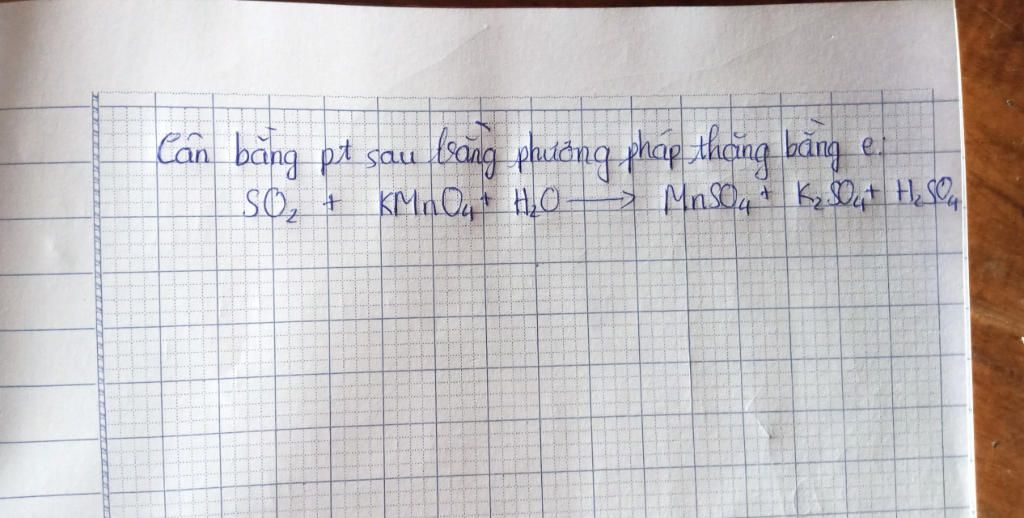 Cân bằng pt sau bằng phương pháp thăng bằng e:
SO₂ + KMnO₄ + H₂O ⟶ MnSO₄ + K₂SO₄ + H₂SO₄